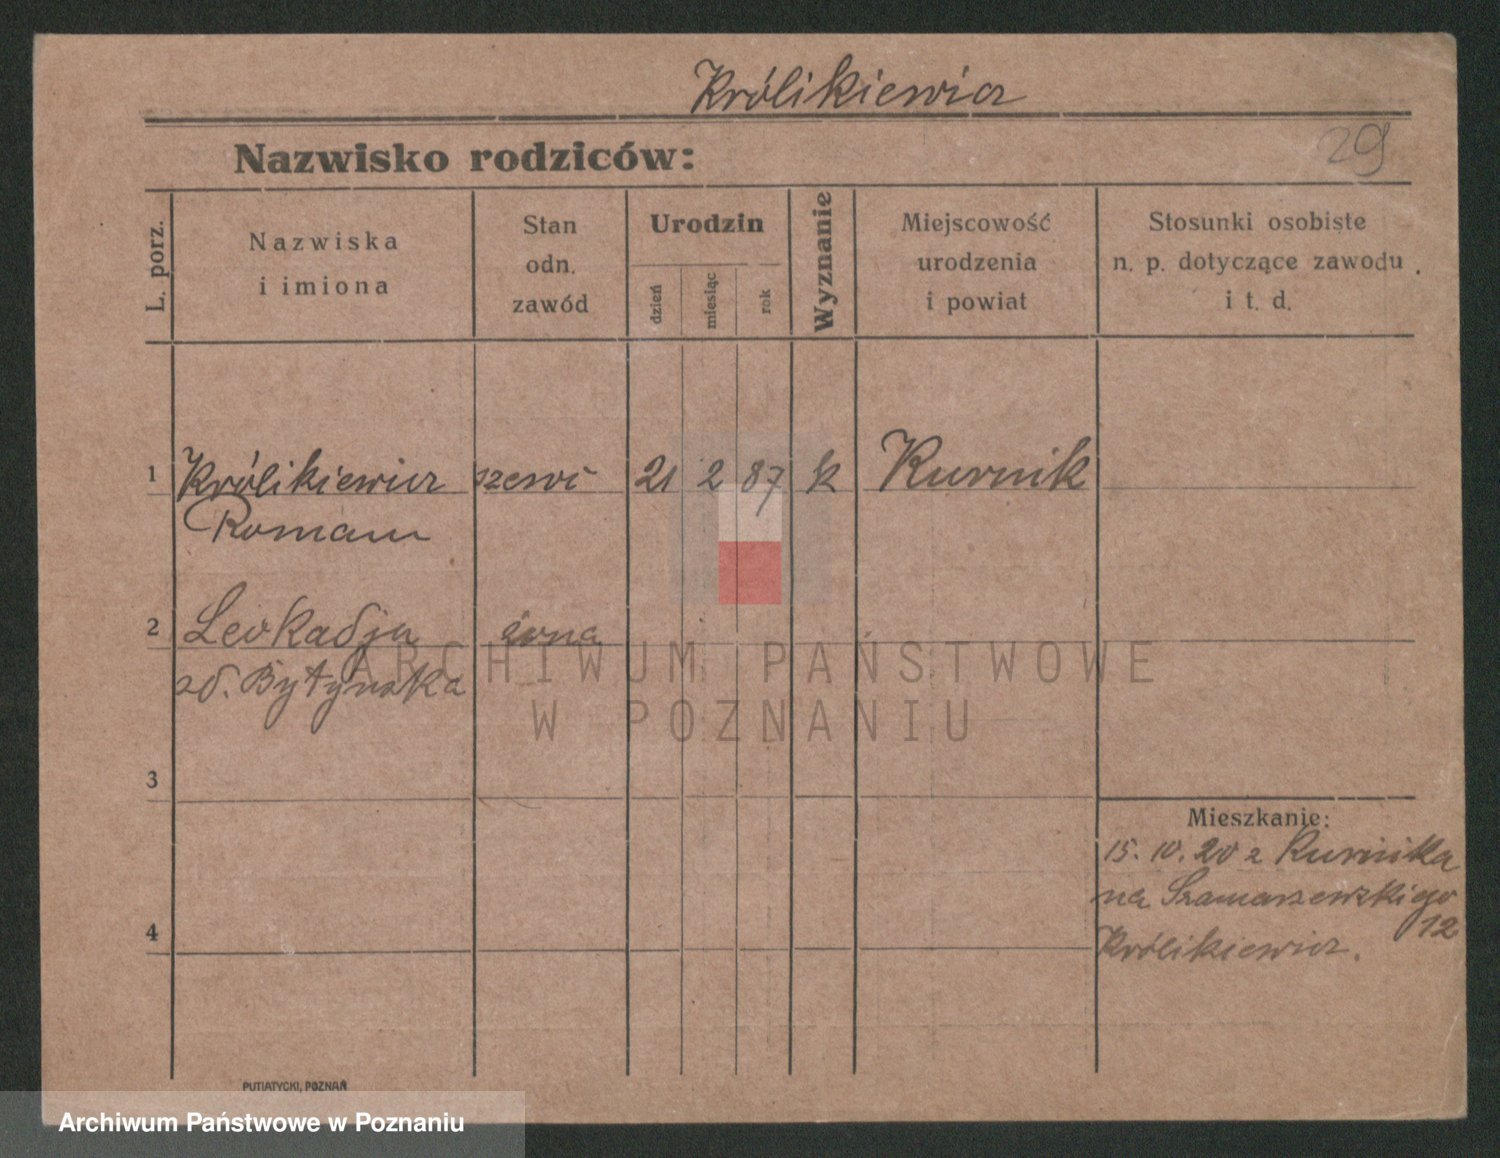 Królikiewicz
29
Nazwisko rodziców:
L. porz.
Nazwiska
i imiona
Stan
odn.
zawód
Urodzin
dzień
miesiąc
rok
Wyznanie
Miejscowość
urodzenia
i powiat
Stosunki osobiste
n. p. dotyczące zawodu
i t. d.
1
Królikiewicz szewc 21 2 87 k Kurnik
Roman
2
Leokadja żona
zd. Bytyńska
ARCHIWUM PAŃSTWOWE
W POZNANIU
3
Mieszkanie:
15. 10. 20 z Kurnika
na Szamarzewskiego
12
Królikiewicz.
4
PUTIATYCKI, POZNAŃ
Archiwum Państwowe w Poznaniu